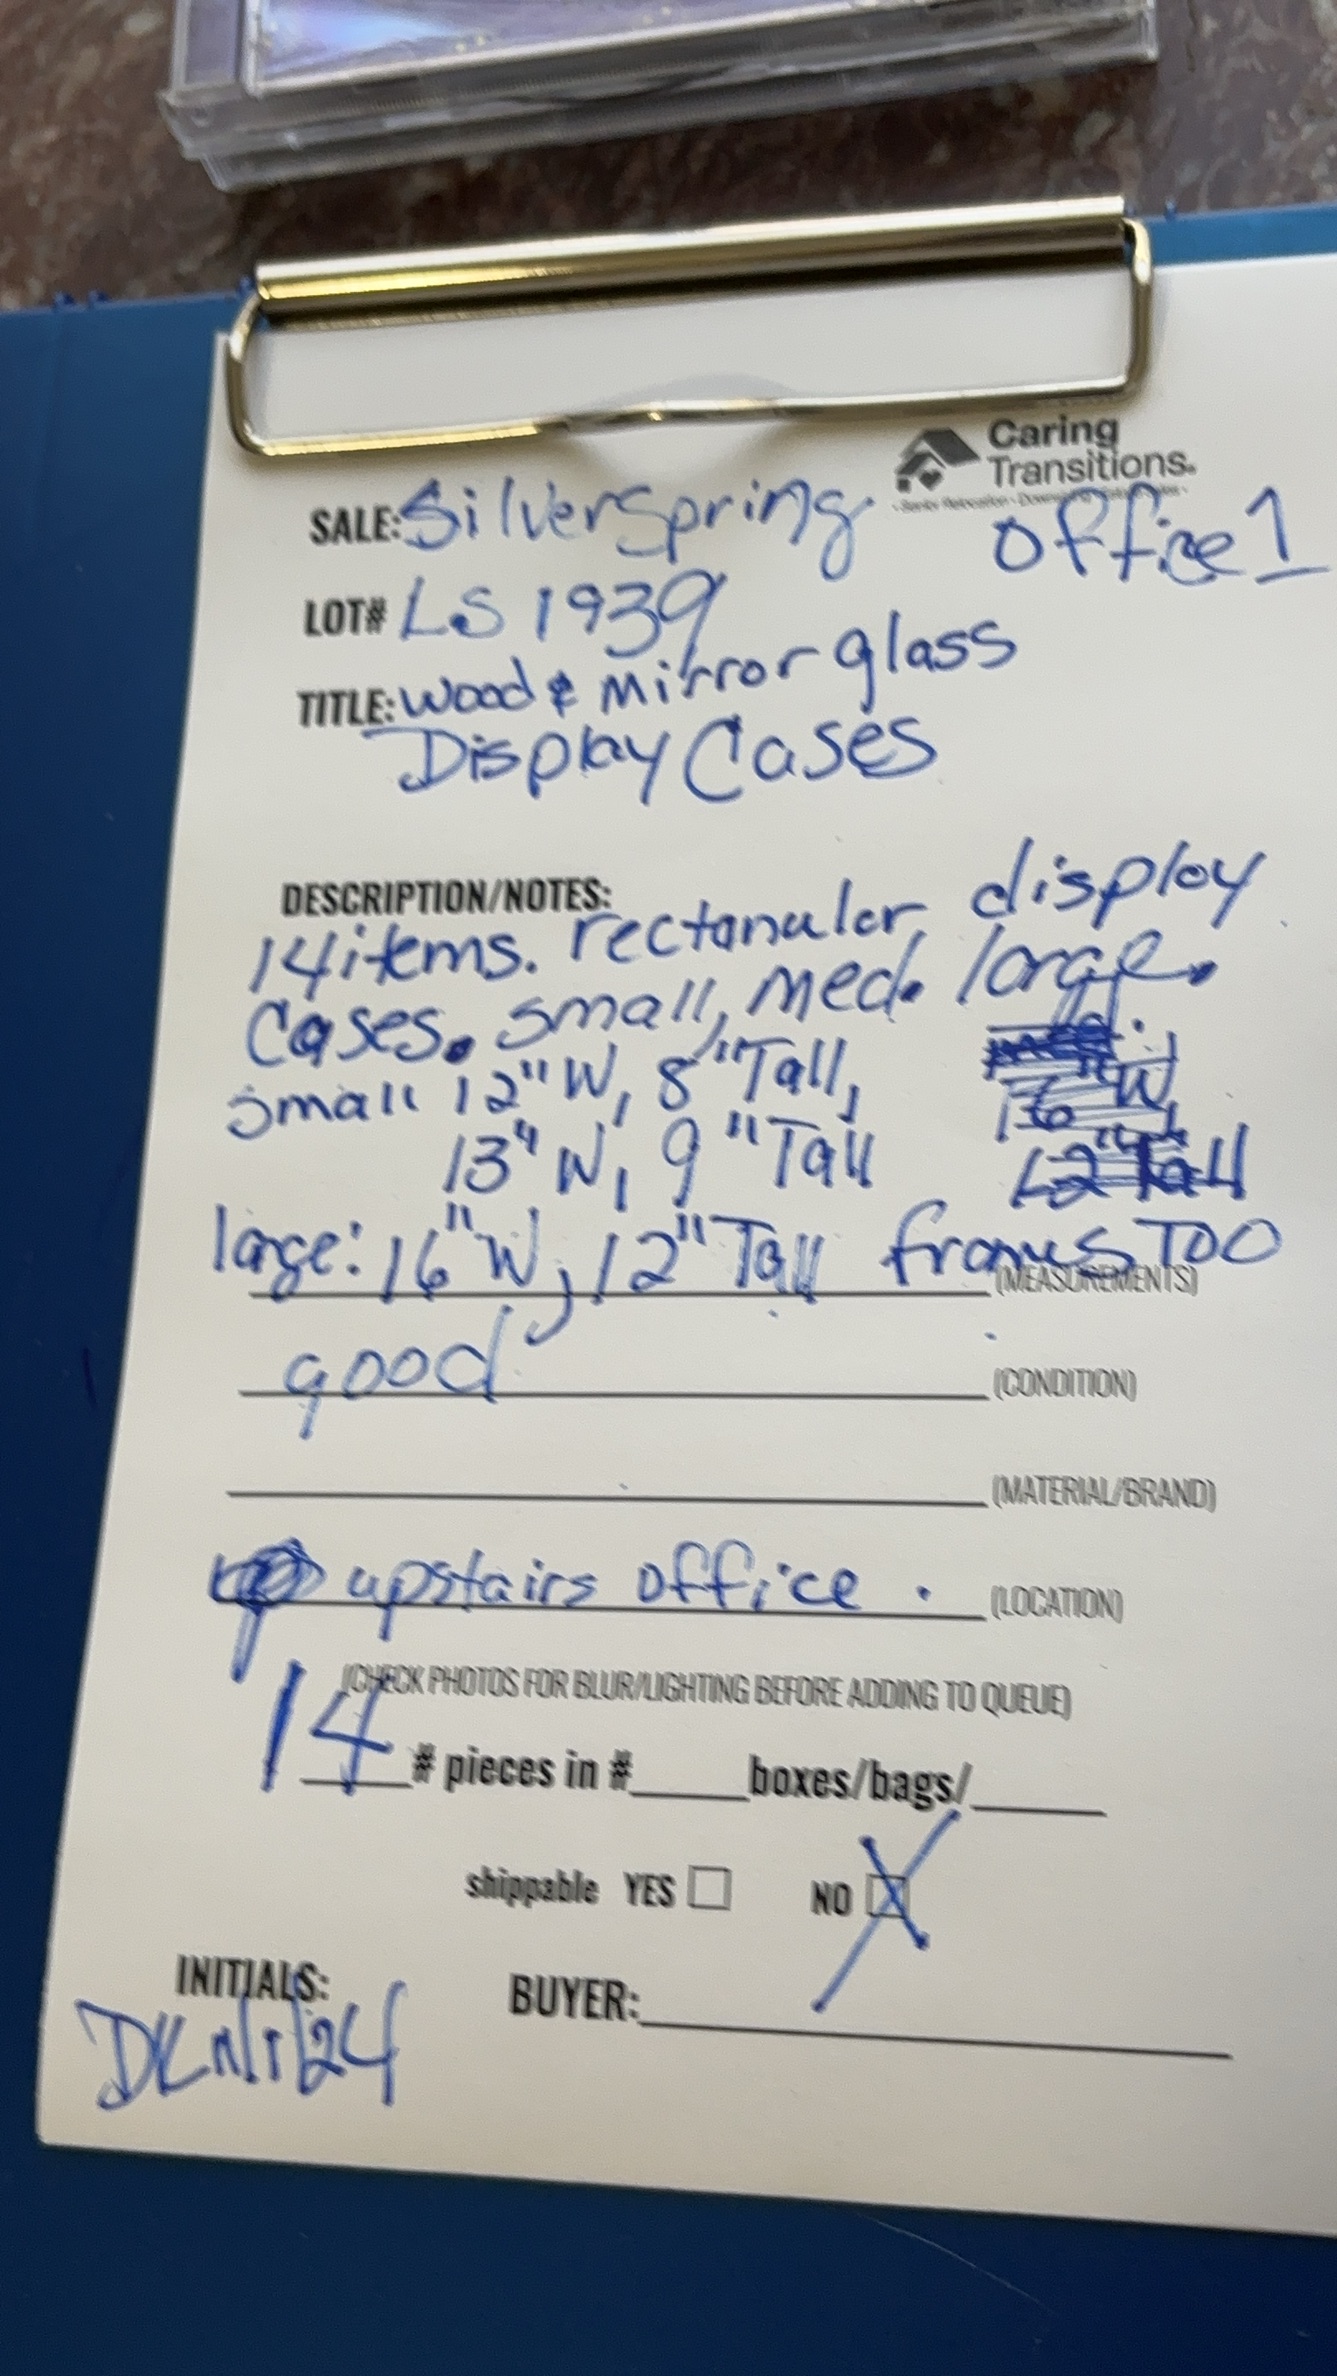 Caring
Transitions.
SALE: Silver Spring Office 1
LOT# LS 1939
TITLE: Wood & Mirror glass
Display Cases
DESCRIPTION/NOTES:
14 items. rectanuler display
Cases. small, med. large.
small 12" W, 8" Tall,
16" W,
13" W, 9" Tall
12" Tall
large: 16" W, 12" Tall frames TOO
(MEASUREMENTS)
good (CONDITION)
(MATERIAL/BRAND)
upstairs office. (LOCATION)
(CHECK PHOTOS FOR BLUR/LIGHTING BEFORE ADDING TO QUEUE)
14 # pieces in # boxes/bags/
shippable YES NO X
INITIALS: BUYER: